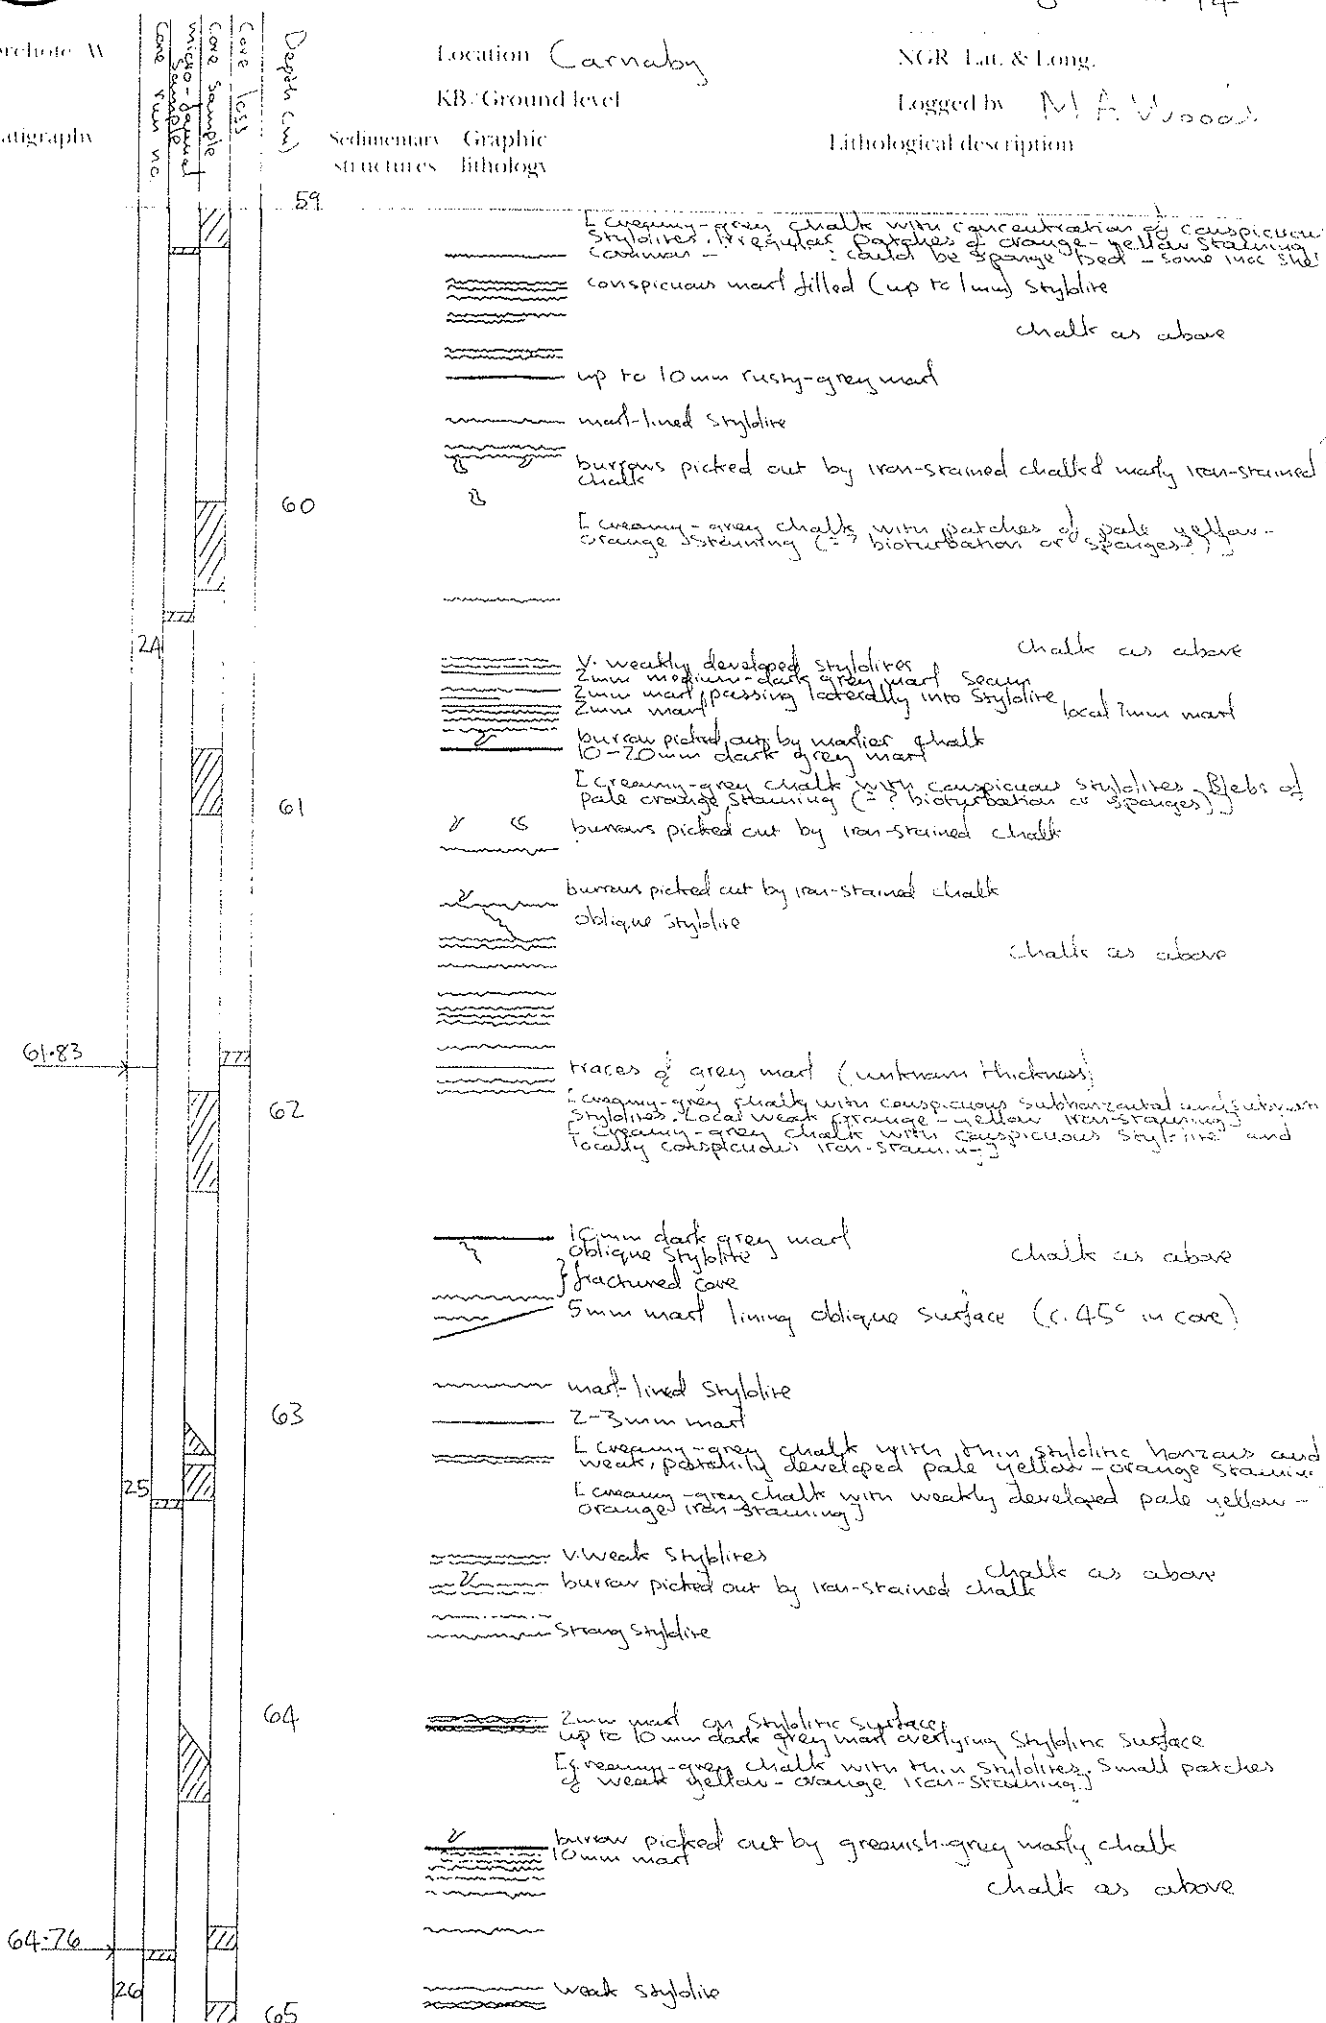 14
Location Carnaby
NGR Lat. & Long.
KB/Ground level
Logged by M A Woods
Core run no.
micro-faunal sample
Core sample
Core loss
Depth (m)
Sedimentary structures
Graphic lithology
Lithological description
59
[creamy-grey chalk with concentration of conspicuous
stylolites. Irregular patches of orange-yellow staining
common - : could be sponge bed - some inoc she
conspicuous marl filled (up to 1mm) stylolite
chalk as above
up to 10mm rusty-grey marl
marl-lined stylolite
burrows picked out by iron-stained chalk & marly iron-stained
chalk
60
[creamy-grey chalk with patches of pale yellow-
orange staining (=? bioturbation or sponges)]
24
chalk as above
v. weakly developed stylolites
2mm medium-dark grey marl seam
2mm marl, passing laterally into stylolite
2mm marl
local 2mm marl
burrow picked out by marlier chalk
10-20mm dark grey marl
[creamy-grey chalk with conspicuous stylolites. Blebs of
pale orange staining (=? bioturbation or sponges)]
61
burrows picked out by iron-stained chalk
burrows picked out by iron-stained chalk
oblique stylolite
chalk as above
61.83
traces of grey marl (unknown thickness)
[creamy-grey chalk with conspicuous subhorizontal and
62
stylolites. Local weak orange-yellow iron-staining]
[creamy-grey chalk with conspicuous stylolite and
locally conspicuous iron-staining]
10mm dark grey marl
oblique stylolite
chalk as above
} fractured core
5mm marl lining oblique surface (c. 45° in core)
marl-lined stylolite
63
2-3mm marl
[creamy-grey chalk with thin stylolitic horizons and
weak, patchily developed pale yellow-orange staining
25
[creamy-grey chalk with weakly developed pale yellow-
orange iron-staining]
v. weak stylolites
chalk as above
burrow picked out by iron-stained chalk
strong stylolite
64
2mm marl on stylolitic surface
up to 10mm dark grey marl overlying stylolitic surface
[creamy-grey chalk with thin stylolites. Small patches
of weak yellow-orange iron-staining]
burrow picked out by greenish-grey marly chalk
10mm marl
chalk as above
64.76
26
weak stylolite
65